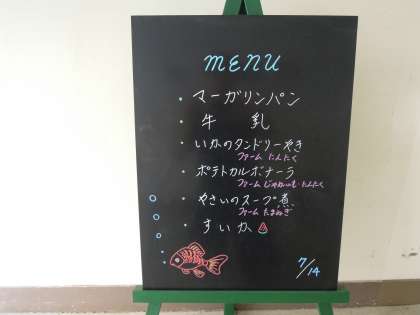 MENU
・マーガリンパン
・牛乳
・いかのタンドリーやき
ファーム にんにく
・ポテトカルボナーラ
ファーム じゃがいも・にんにく
・やさいのスープ煮
ファーム たまねぎ
・すいか
7/14